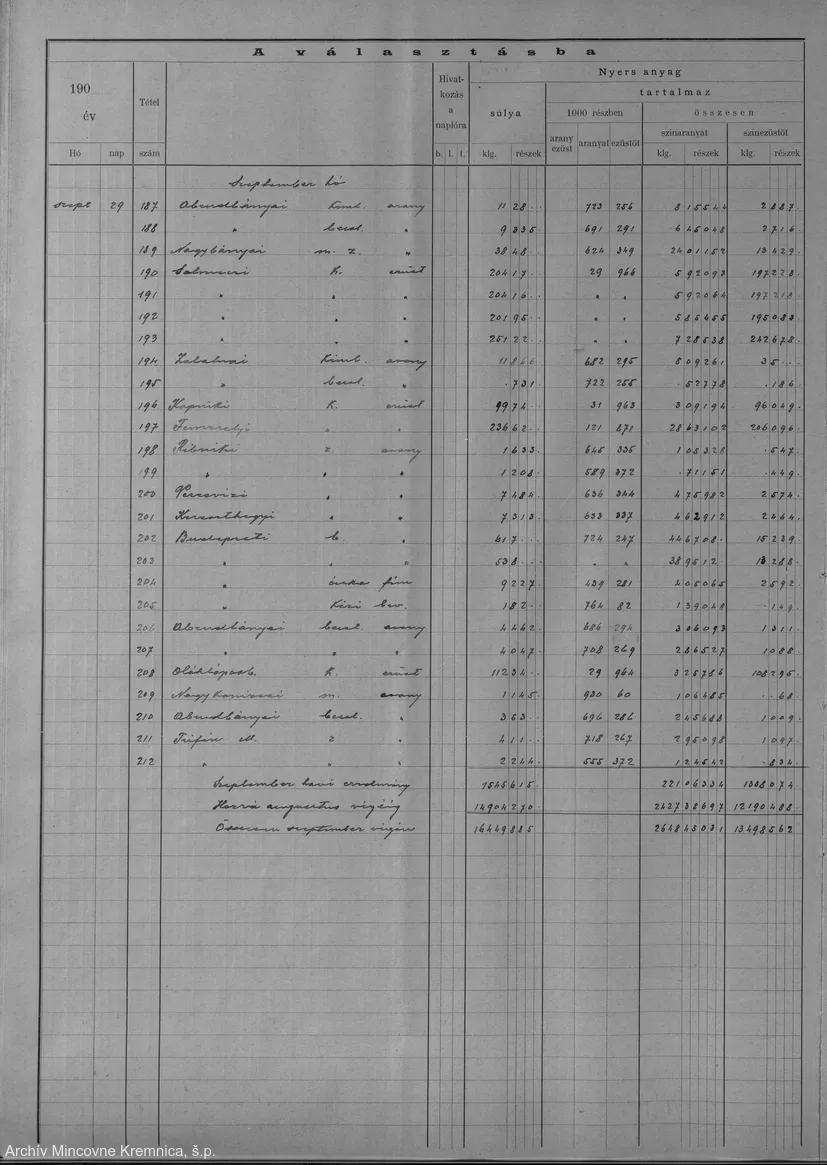 A választásba
190
év
Tétel
szám
Hó nap
Hivat-
kozás
a
naplóra
b. l. t.
Nyers anyag
súlya
klg. részek
tartalmaz
1000 részben
arany
ezüst
aranyat ezüstöt
összesen
színaranyat
klg. részek
színezüstöt
klg. részek
September hó
szept 29 187 Abrudbányai arany 1128 723 256 815544 2887
188 " besl. " 9335 691 291 645048 2716
189 Nagybányai m. z. " 3848 624 349 2401152 13429
190 K. ezüst 20417 29 966 592093 197228
191 " " " 20416 " " 592064 197218
192 " " " 20195 " " 585455 195083
193 " " " 25122 " " 728538 242678
194 Zalatnai arany 11866 682 295 809261 35
195 " besl. " 731 722 255 52778 186
196 Kapniki K. ezüst 9974 31 963 309194 96049
197 " " 23662 121 871 2863102 206096
198 z. arany 1633 645 335 105328 547
199 " " " 1208 589 372 71151 449
200 " " 7484 636 344 475982 2574
201 " " 7313 633 337 462912 2464
202 Budapesti b. " 617 724 247 446708 15239
203 " " " 538 " " 389512 13288
204 " 9227 439 281 405065 2592
205 " 182 764 82 139048 149
206 Abrudbányai besl. arany 4462 686 294 306093 1311
207 " " " 4047 708 269 286527 1088
208 K. ezüst 11234 29 964 325786 108295
209 m. arany 1145 930 60 106485 68
210 Abrudbányai besl. " 353 696 286 245688 1009
211 z " 411 718 267 295098 1097
212 " " " 2244 555 372 124542 834
September havi eredmény 1545615 22106334 1308074
Hozzá augusztus végéig 14904270 242738697 12190488
Összesen szeptember végén 16449885 264845031 13498562
Archív Mincovne Kremnica, š.p.